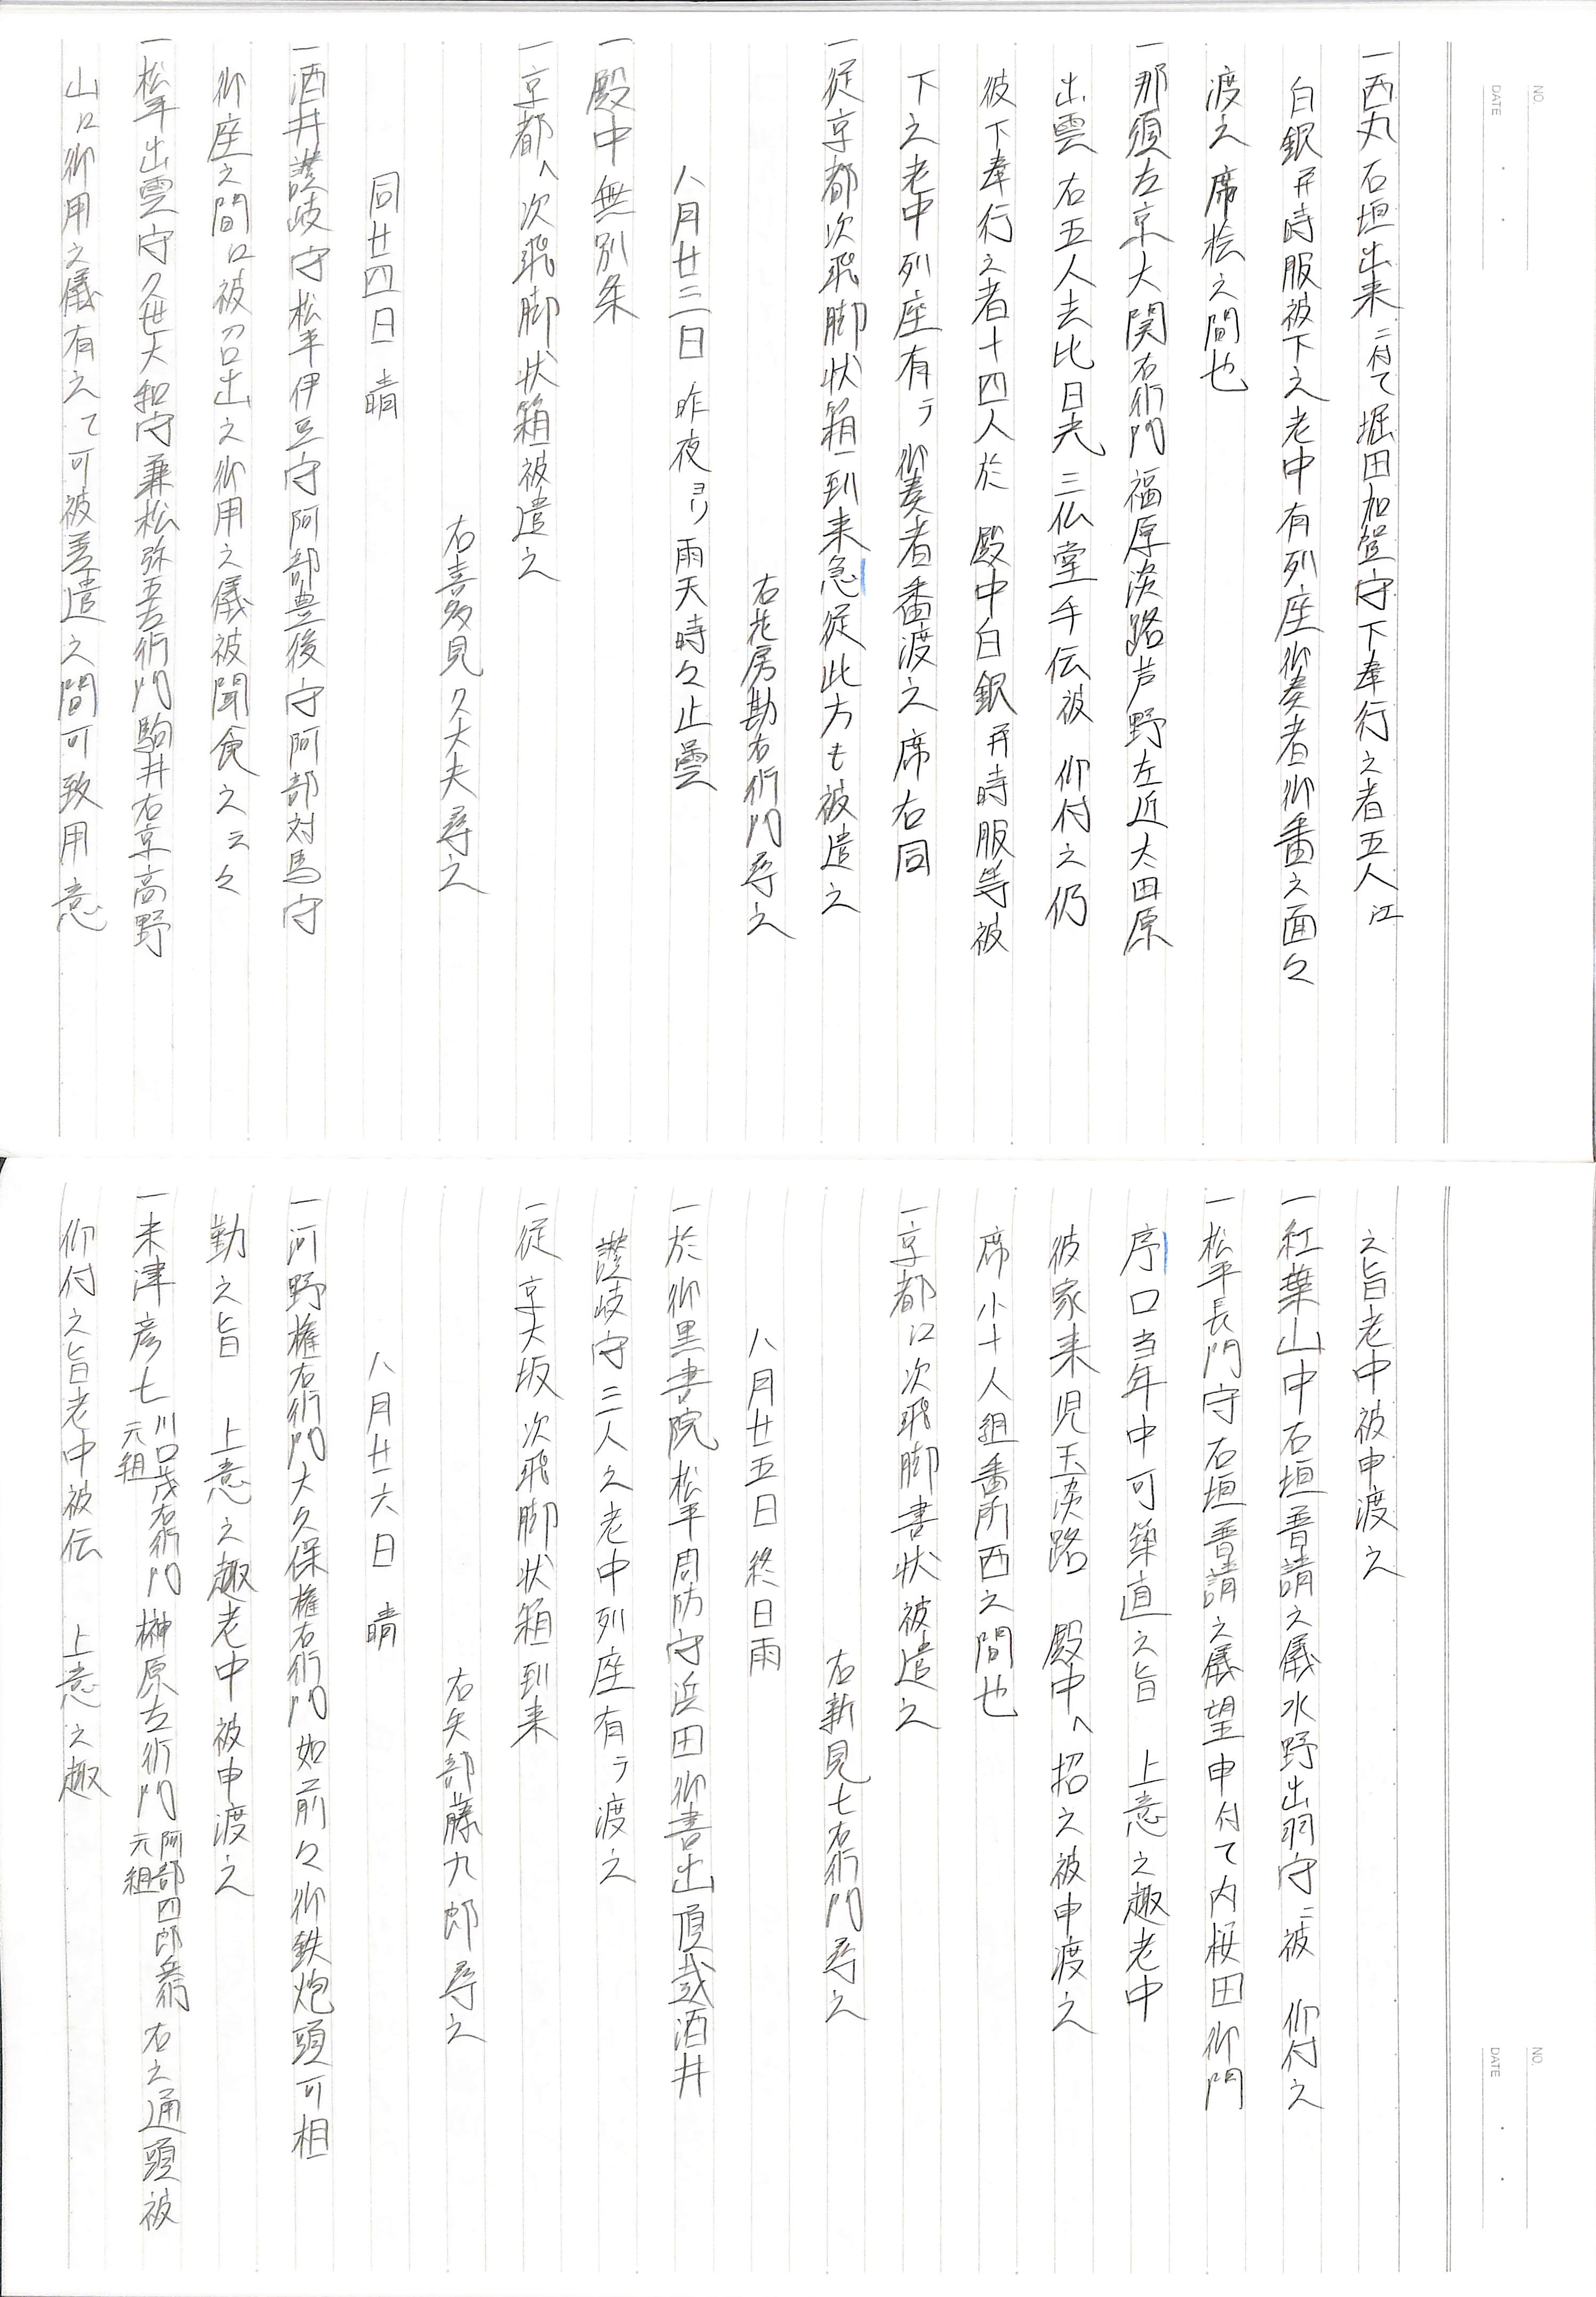 NO.
DATE
一西丸石垣出来ニ付て堀田加賀守下奉行之者五人江
白銀并時服被下之老中有列座御奏者御番之面々
渡之席桧之間也
一那須左京大関右衛門福原淡路芦野左近大田原
出雲右五人去比日光三仏堂手伝被 仰付之仍
彼下奉行之者十四人於 殿中白銀并時服等被
下之老中列座有テ御奏者番渡之席右同
一従京都次飛脚状箱一到来急従此方も被遣之
右花房勘右衛門尋之
八月廿三日 昨夜ヨリ雨天時々止曇
一殿中無別条
一京都へ次飛脚状箱一被遣之
右喜多見久大夫尋之
同廿四日 晴
一酒井讃岐守松平伊豆守阿部豊後守阿部対馬守
御座之間口被召出之御用之儀被聞食之云々
一松平出雲守久世大和守兼松弥五左衛門駒井右京高野
山口御用之儀有之て可被差遣之間可致用意
NO.
DATE
之旨老中被申渡之
一紅葉山中石垣普請之儀水野出羽守ニ被 仰付之
一松平長門守石垣普請之儀望申付て内桜田御門
序口当年中可築直之旨 上意之趣老中
彼家来児玉淡路 殿中へ招之被申渡之
席小十人組番所西之間也
一京都口次飛脚書状被遣之
右新見七右衛門尋之
八月廿五日 終日雨
一於御黒書院松平周防守浜田御書出頂戴酒井
讃岐守三人之老中列座有テ渡之
一従京大坂次飛脚状箱到来
右矢部藤九郎尋之
八月廿六日 晴
一河野権右衛門大久保権右衛門如前々御鉄炮頭可相
勤之旨 上意之趣老中被申渡之
一末津彦七川口茂右衛門元組 榊原左衛門阿部四郎兵衛元組 右之通頭被
仰付之旨老中被伝 上意之趣